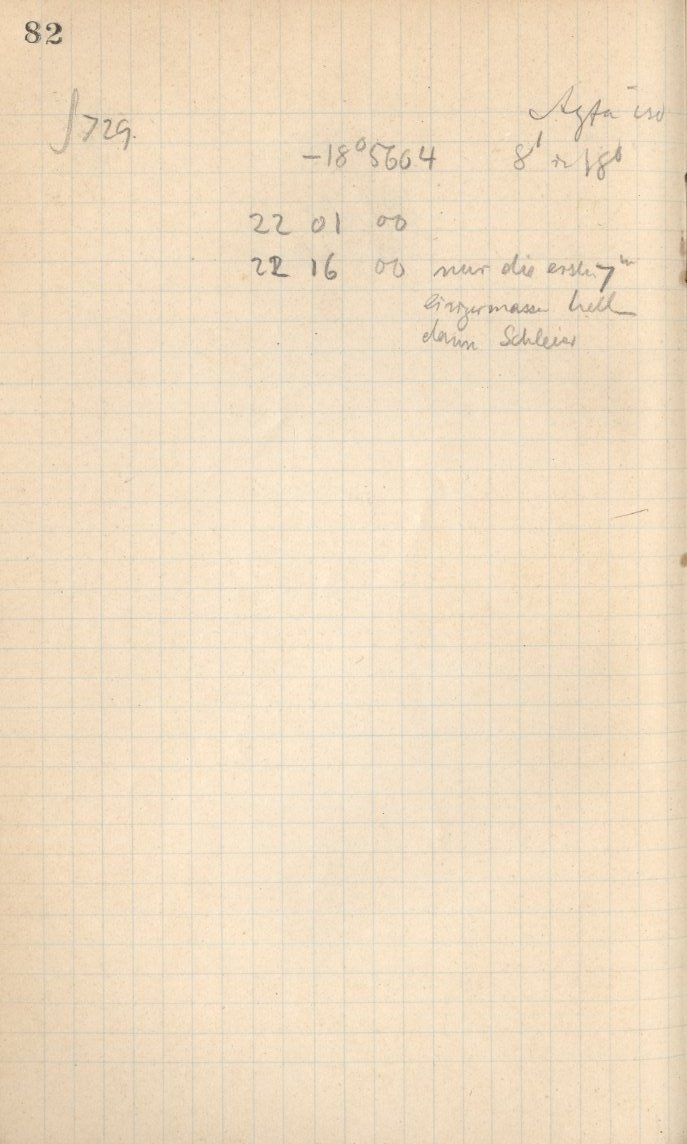 82
Agfa iso
729.
-18°5604 8' 18'
22 01 00
22 16 00 nur die ersten 7m
einigermassen hell
dann Schleier